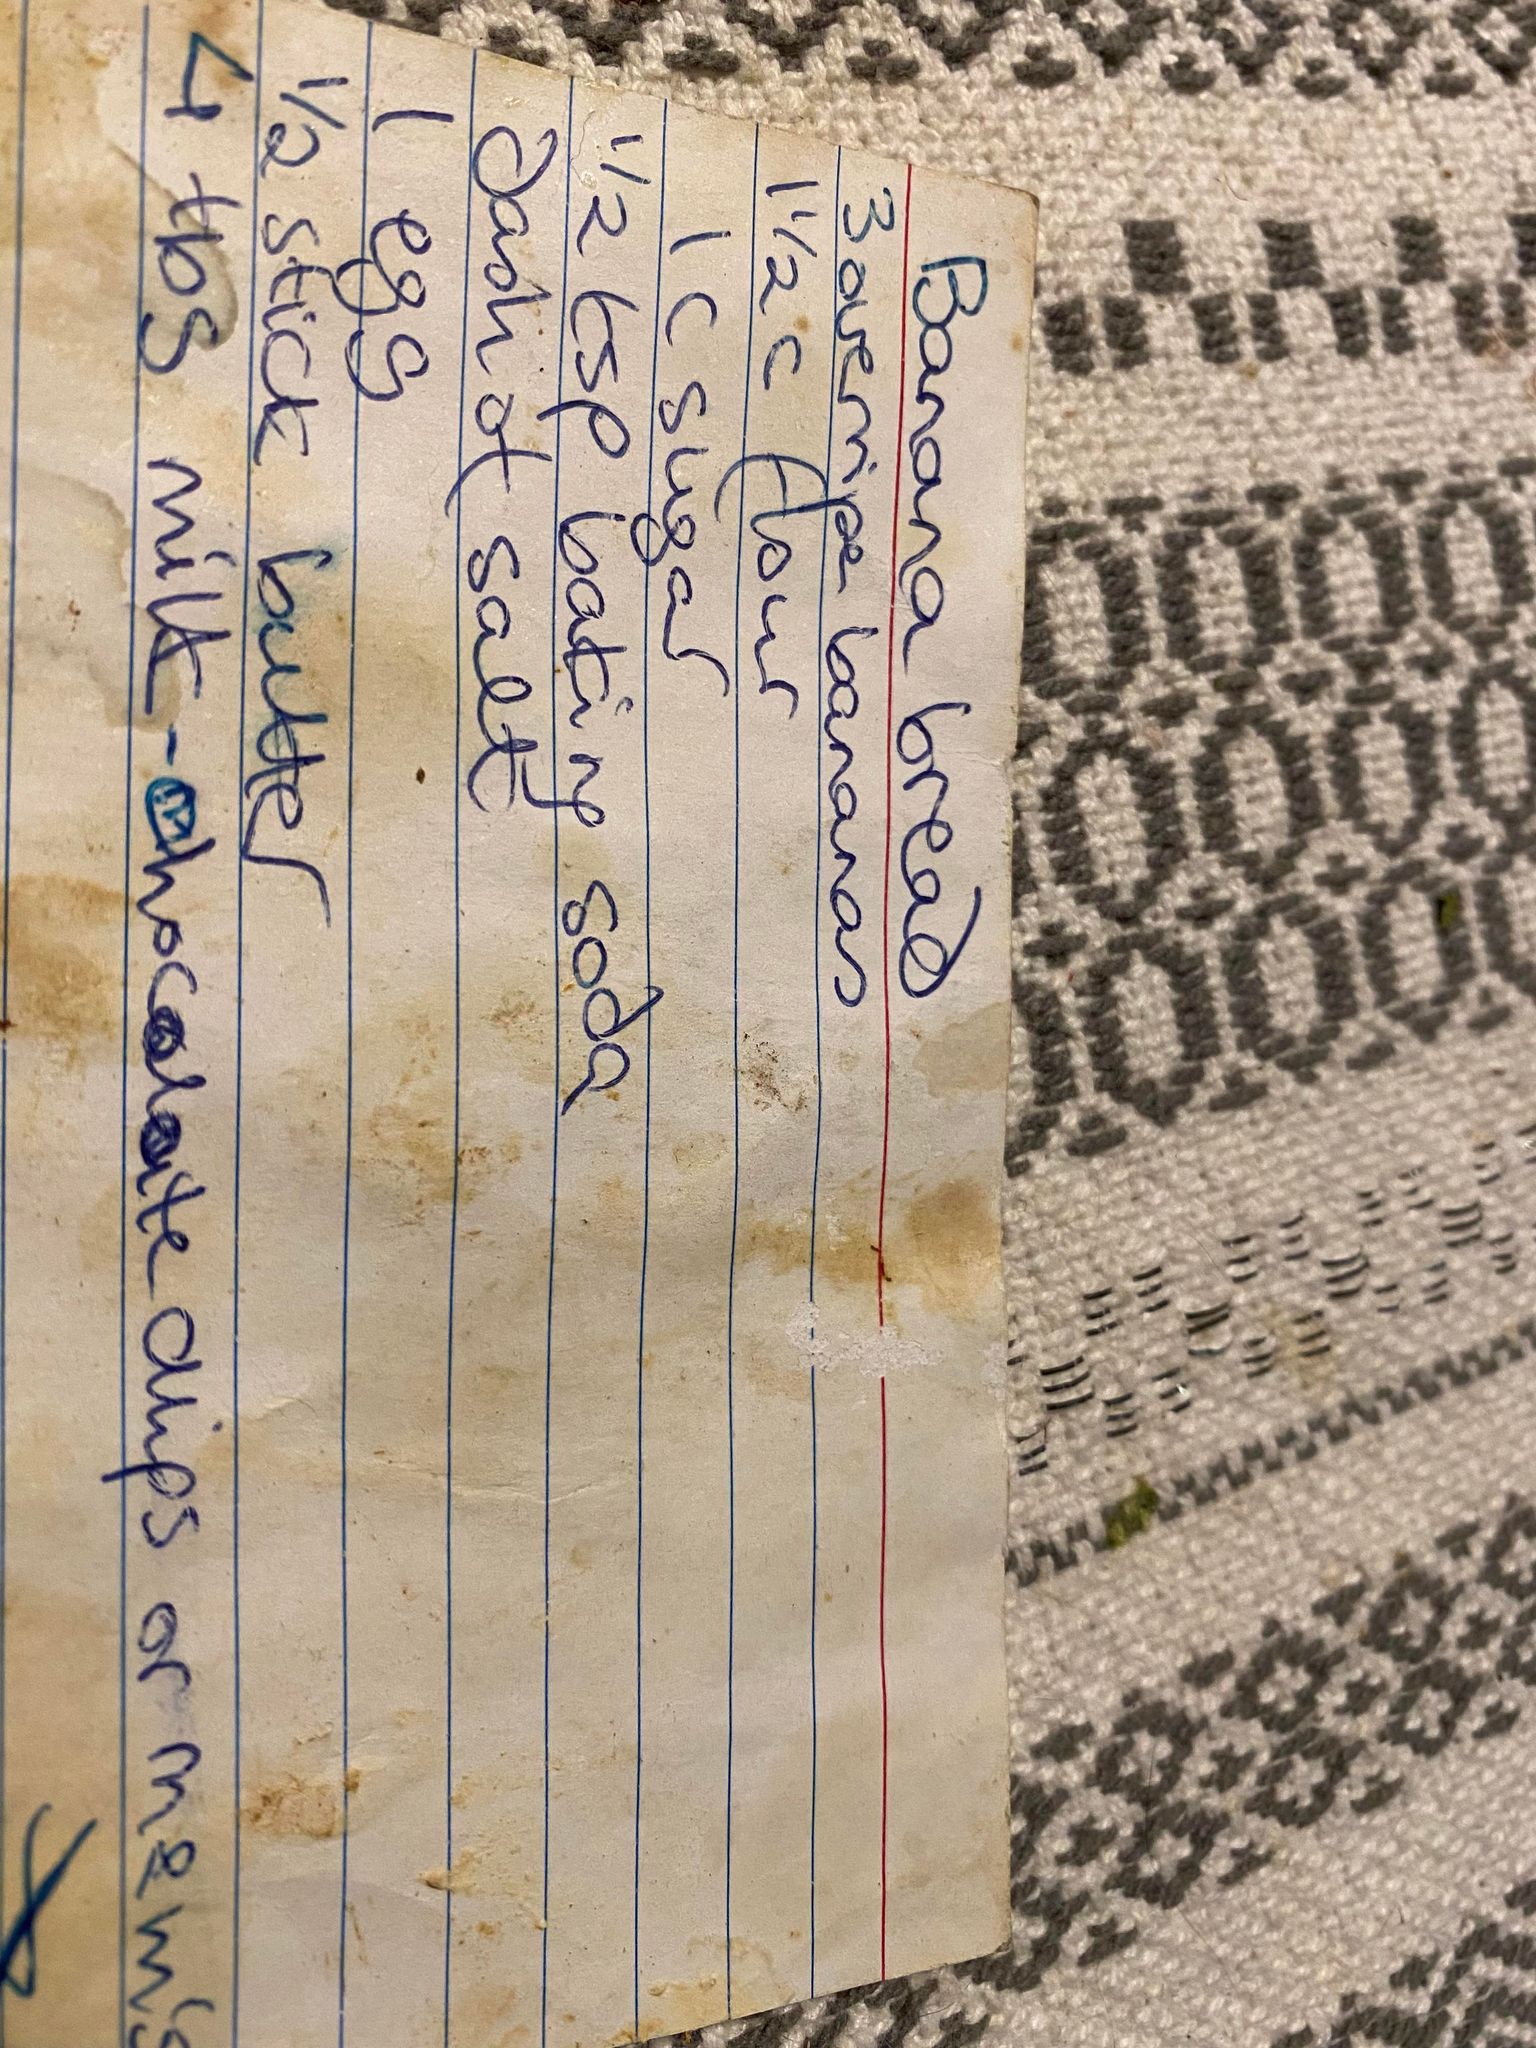 Banana bread
3 overripe bananas
1 1/2 c flour
1 c sugar
1/2 tsp baking soda
Dash of salt
1 egg
1/2 stick butter
4 tbs milk - chocolate chips or m&m's